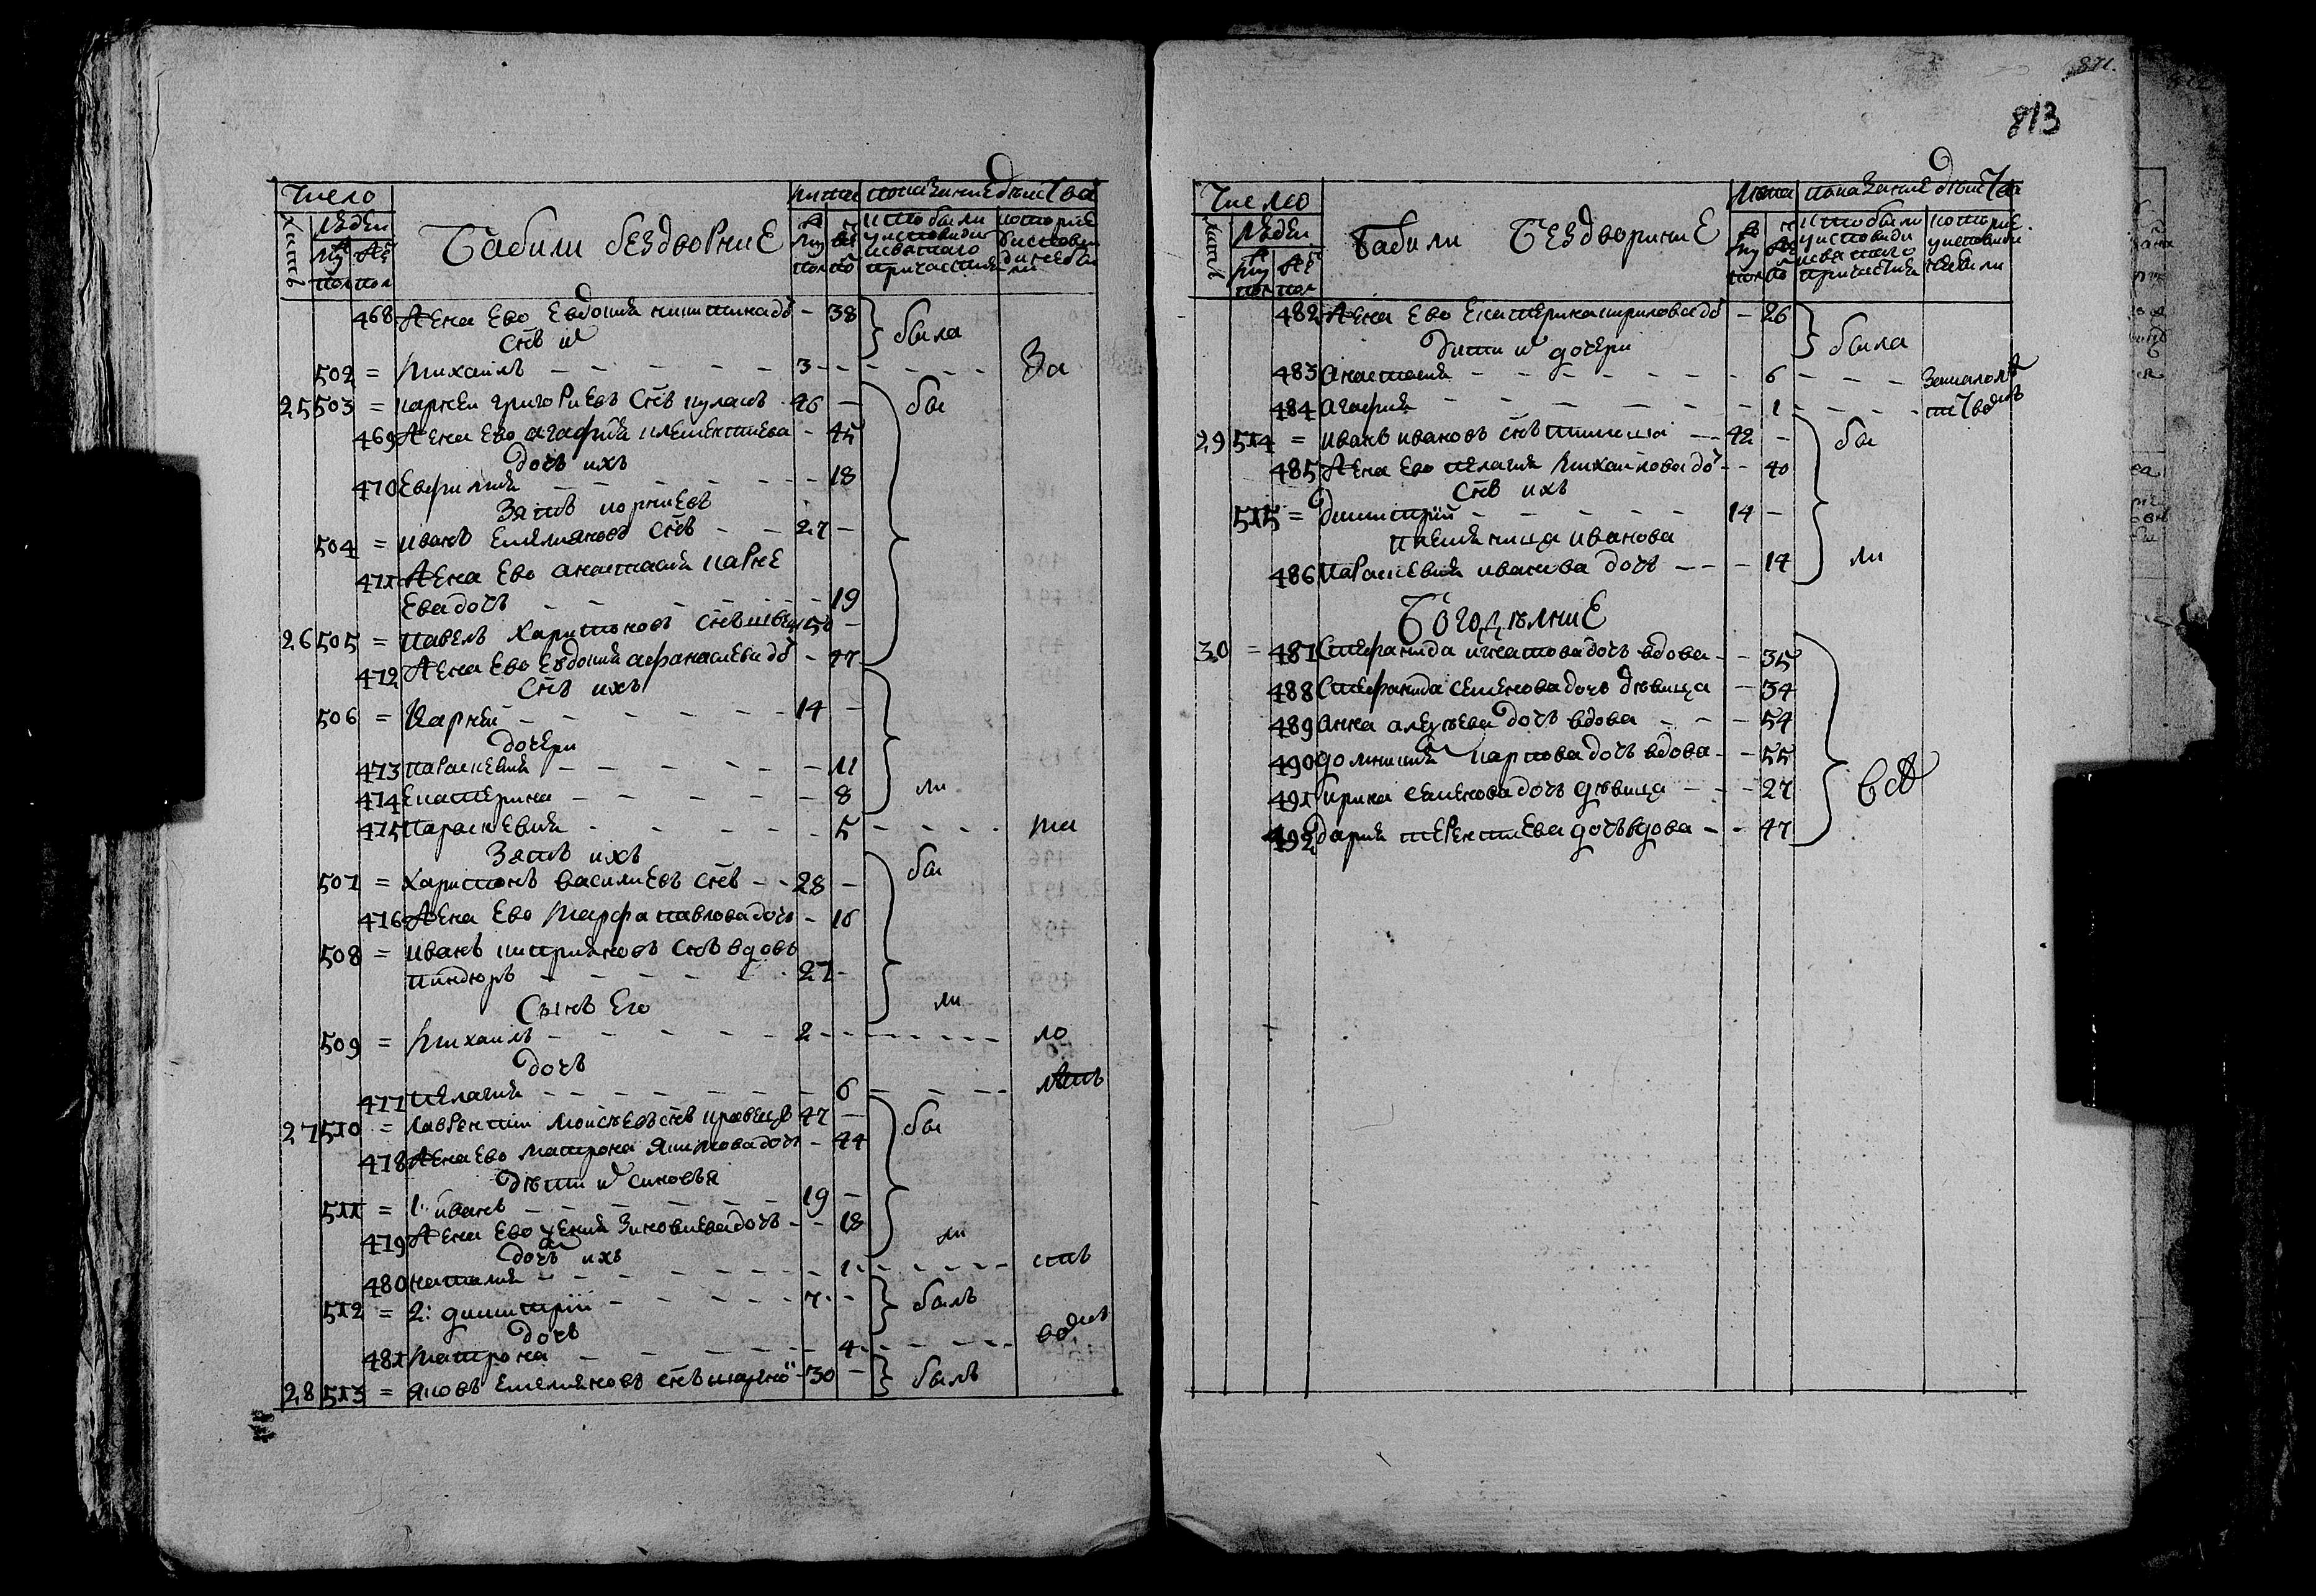 Число
людеи
Бабили бездворние
Лета
показание действа
468 Жена Ево Евдокия никитина до - 38
была
Снъ их
502 = Михаилъ 3
За
25 503 = карнеи григориевъ Снъ кулакъ 46
бы
469 Жена Ево агафия клементиева - 45
Дочь ихъ
470 Евфимия 18
Зять корниевъ
504 = иванъ Емелиановъ Снъ - - 27
471 Жена Ево анастасия карне
Ева дочь 19
26 505 = павелъ Харитоновъ Снъ швец 50
472 Жена Ево Евдокия афанасиева до - 47
Снъ ихъ
506 = Карнеи 14
дочери
473 параскевия 11
474 Екатерина 8
ли
475 параскевия 5
ма
Зять ихъ
507 = Харитонъ василиевъ Снъ - - 28
бы
476 Жена Ево Марфа павлова дочь - 16
508 = иванъ киприяновъ Снъ вдовъ
пиндюръ 27
ли
Сынъ Его
509 = Михаилъ 2
ло
Дочь
477 пелагия 6
летъ
27 510 = лаврентии Моисеевъ снъ кравецъ 47
бы
478 Жена Ево матрона якимова дочь - 44
Дети их синовья
511 = 1: иванъ 19
479 Жена Ево ксения Зиновиева дочь - - 18
ли
дочь ихъ
480 наталия 1
ств
512 = 2: димитрии 7
былъ
дочь
481 Матрона 4
водие
28 513 = яковъ Емелияновъ снъ шарко 30
былъ
871.
813
Число
людеи
Бабили Бездворние
Лета
показание действа
482 Жена Ево Екатерина кирилова до - 26
была
Дети их дочери
483 анастасия 6
замалолет
484 агафия 1
ствомъ
29 514 = иванъ ивановъ снъ тимоша - - 42
бы
485 Жена Ево пелагия Михаилова до - - 40
Снъ ихъ
515 = Димитрии 14
племяница иванова
486 параскевия иванова дочь - - - 14
ли
Богоделние
30 = 487 Стефанида игнатова дочь вдова - - 35
488 Стефанида семенова дочь девица - 34
489 анна алексеева дочь вдова - - - 54
490 домникия карпова дочь вдова - - 55
491 ирина семенова дочь девица - - - 27
все
492 дария терентиева дочь вдова - - 47